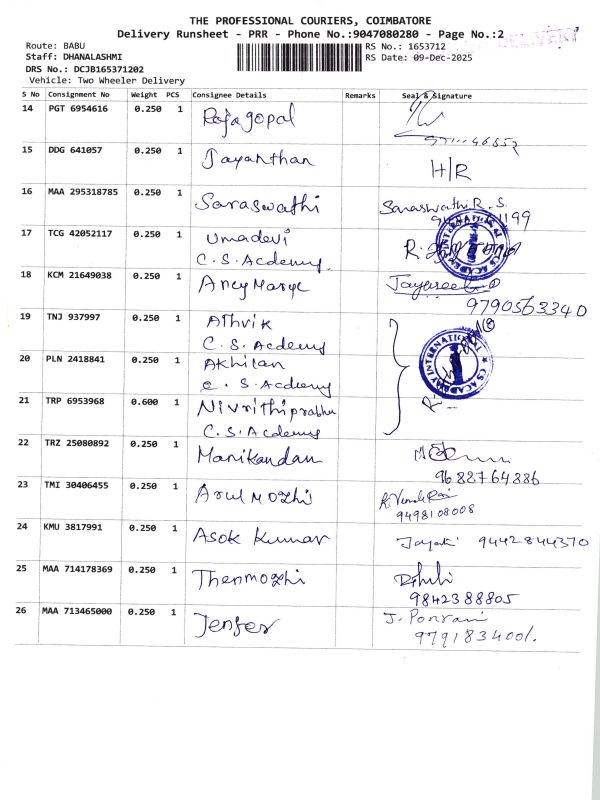 THE PROFESSIONAL COURIERS, COIMBATORE
Delivery Runsheet - PRR - Phone No.:9047080280 - Page No.:2
DELIVERY
Route: BABU
RS No.: 1653712
Staff: DHANALASHMI
RS Date: 09-Dec-2025
DRS No.: DCJB165371202
Vehicle: Two Wheeler Delivery
S No Consignment No Weight PCS Consignee Details Remarks Seal & Signature
14 PGT 6954616 0.250 1 Rajagopal
15 DDG 641057 0.250 1 Jayanthan H/R
16 MAA 295318785 0.250 1 Saraswathi Saraswathi. R. S.
17 TCG 42052117 0.250 1 Umadevi
C.S. Acdemy.
18 KCM 21649038 0.250 1 Ancy Marye Jayasree
9790563340
19 TNJ 937997 0.250 1 Athvik
C.S. Acdemy
20 PLN 2418841 0.250 1 Akhilan
C.S. Acdemy
CS ACADEMY INTERNATIONAL
21 TRP 6953968 0.600 1 Nivrithiprabhu
C.S. Acdemy
22 TRZ 25080892 0.250 1 Manikandan
9688764886
23 TMI 30406455 0.250 1 Arul mozhi
9498108008
24 KMU 3817991 0.250 1 Asok Kumar Jayati 9442844370
25 MAA 714178369 0.250 1 Thenmozhi
9842388805
26 MAA 713465000 0.250 1 Jenfer J. Ponrani
9791834001.